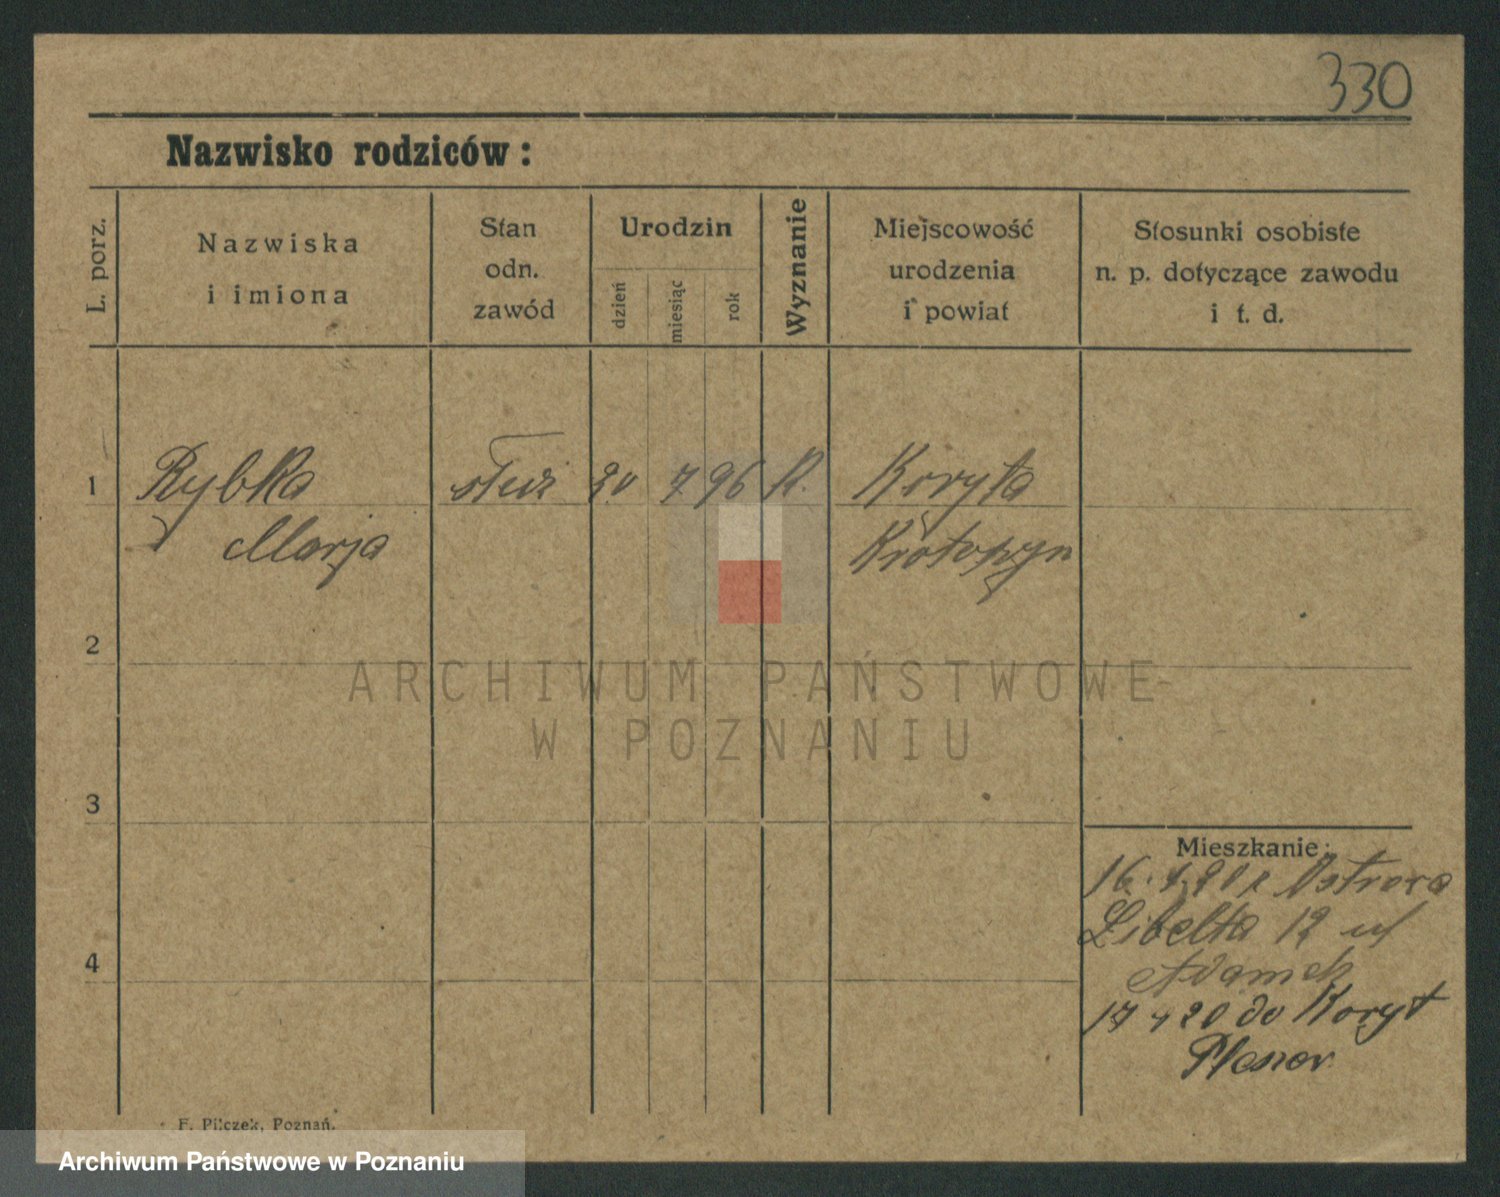 330
Nazwisko rodziców:
L. porz.
Nazwiska
i imiona
Stan
odn.
zawód
Urodzin
dzień
miesiąc
rok
Wyznanie
Miejscowość
urodzenia
i powiat
Stosunki osobiste
n. p. dotyczące zawodu
i t. d.
1
Rybka
Marja
służ
20
7
96
K.
Koryta
Krotoszyn
2
3
4
Mieszkanie:
Libelta 12
Adamek
20 do Koryt
F. Pilczek, Poznań.
ARCHIWUM PAŃSTWOWE
W POZNANIU
Archiwum Państwowe w Poznaniu